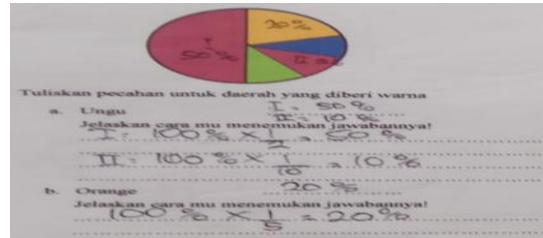 20 %
I
50 %
II
Tuliskan pecahan untuk daerah yang diberi warna
a. Ungu I = 50 %
II = 10 %
Jelaskan cara mu menemukan jawabannya!
I = 100 % X 1/2 = 50 %
II = 100 % X 1/10 = 10 %
b. Orange 20 %
Jelaskan cara mu menemukan jawabannya!
100 % X 1/5 = 20 %